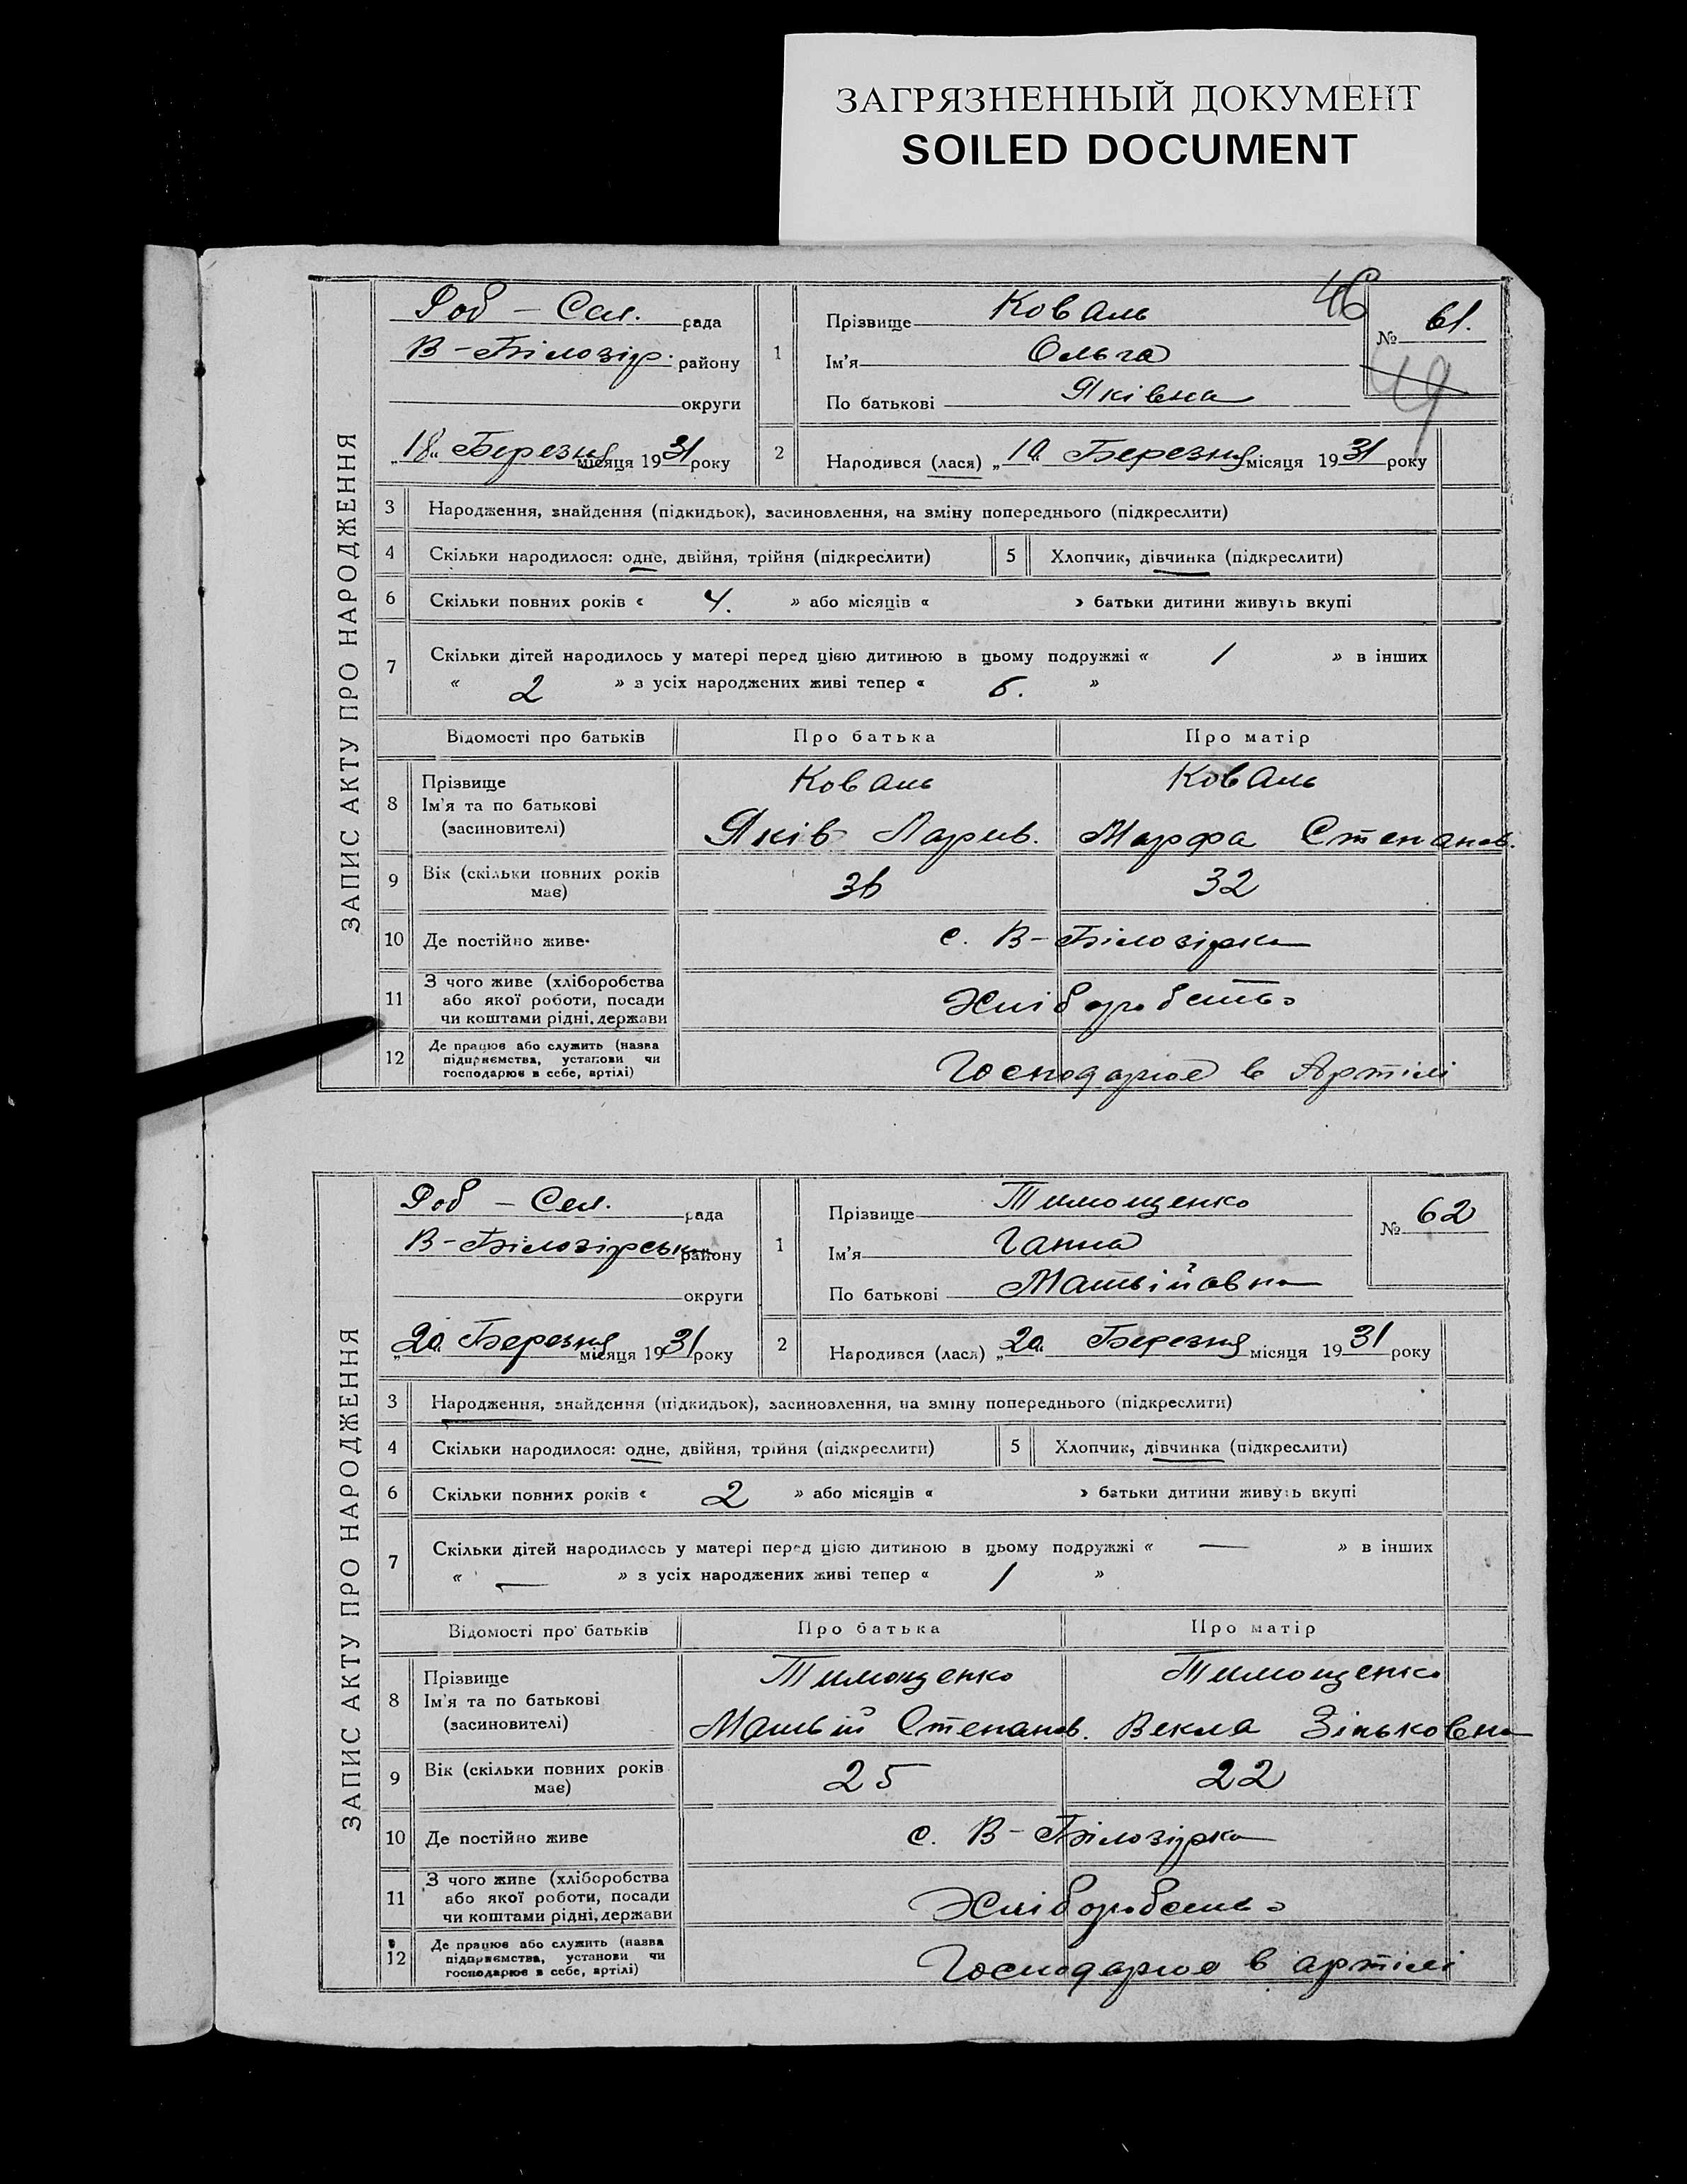 ЗАГРЯЗНЕННЫЙ ДОКУМЕНТ
SOILED DOCUMENT
46
ЗАПИС АКТУ ПРО НАРОДЖЕННЯ
Роб – Сел. рада
В – Білозір. району
округи
„18“ Березня місяця 1931 року
1
Прізвище Коваль
Ім'я Ольга
По батькові Яківна
№ 61.
49
2
Народився (лася) „10“ Березня місяця 1931 року
3 Народження, знайдення (підкидьок), засиновлення, на зміну попереднього (підкреслити)
4 Скільки народилося: одне, двійня, трійня (підкреслити) 5 Хлопчик, дівчинка (підкреслити)
6 Скільки повних років « 4. » або місяців « » батьки дитини живуть вкупі
7 Скільки дітей народилось у матері перед цією дитиною в цьому подружжі « 1 » в інших
« 2 » з усіх народжених живі тепер « »
Відомості про батьків Про батька Про матір
8 Прізвище Коваль Коваль
Ім'я та по батькові
(засиновителі) Яків Ларив. Марфа Степанов.
9 Вік (скільки повних років має) 36 32
10 Де постійно живе с. В – Білозірка
11 З чого живе (хліборобства
або якої роботи, посади
чи коштами рідні, держави Хліборобство
12 Де працює або служить (назва
підприємства, установи чи
господарює в себе, артілі) Господарює в Артілі
ЗАПИС АКТУ ПРО НАРОДЖЕННЯ
Роб – Сел. рада
В – Білозірська району
округи
„20“ Березня місяця 1931 року
1
Прізвище Тимощенко
Ім'я Ганна
По батькові Матвійовна
№ 62
2
Народився (лася) „20“ Березня місяця 1931 року
3 Народження, знайдення (підкидьок), засиновлення, на зміну попереднього (підкреслити)
4 Скільки народилося: одне, двійня, трійня (підкреслити) 5 Хлопчик, дівчинка (підкреслити)
6 Скільки повних років « 2 » або місяців « » батьки дитини живуть вкупі
7 Скільки дітей народилось у матері перед цією дитиною в цьому подружжі « — » в інших
« — » з усіх народжених живі тепер « 1 »
Відомості про батьків Про батька Про матір
8 Прізвище Тимощенко Тимощенко
Ім'я та по батькові
(засиновителі) Матвій Степанов. Векла Зіньковна
9 Вік (скільки повних років має) 25 22
10 Де постійно живе с. В – Білозірка
11 З чого живе (хліборобства
або якої роботи, посади
чи коштами рідні, держави Хліборобство
12 Де працює або служить (назва
підприємства, установи чи
господарює в себе, артілі) Господарює в артілі